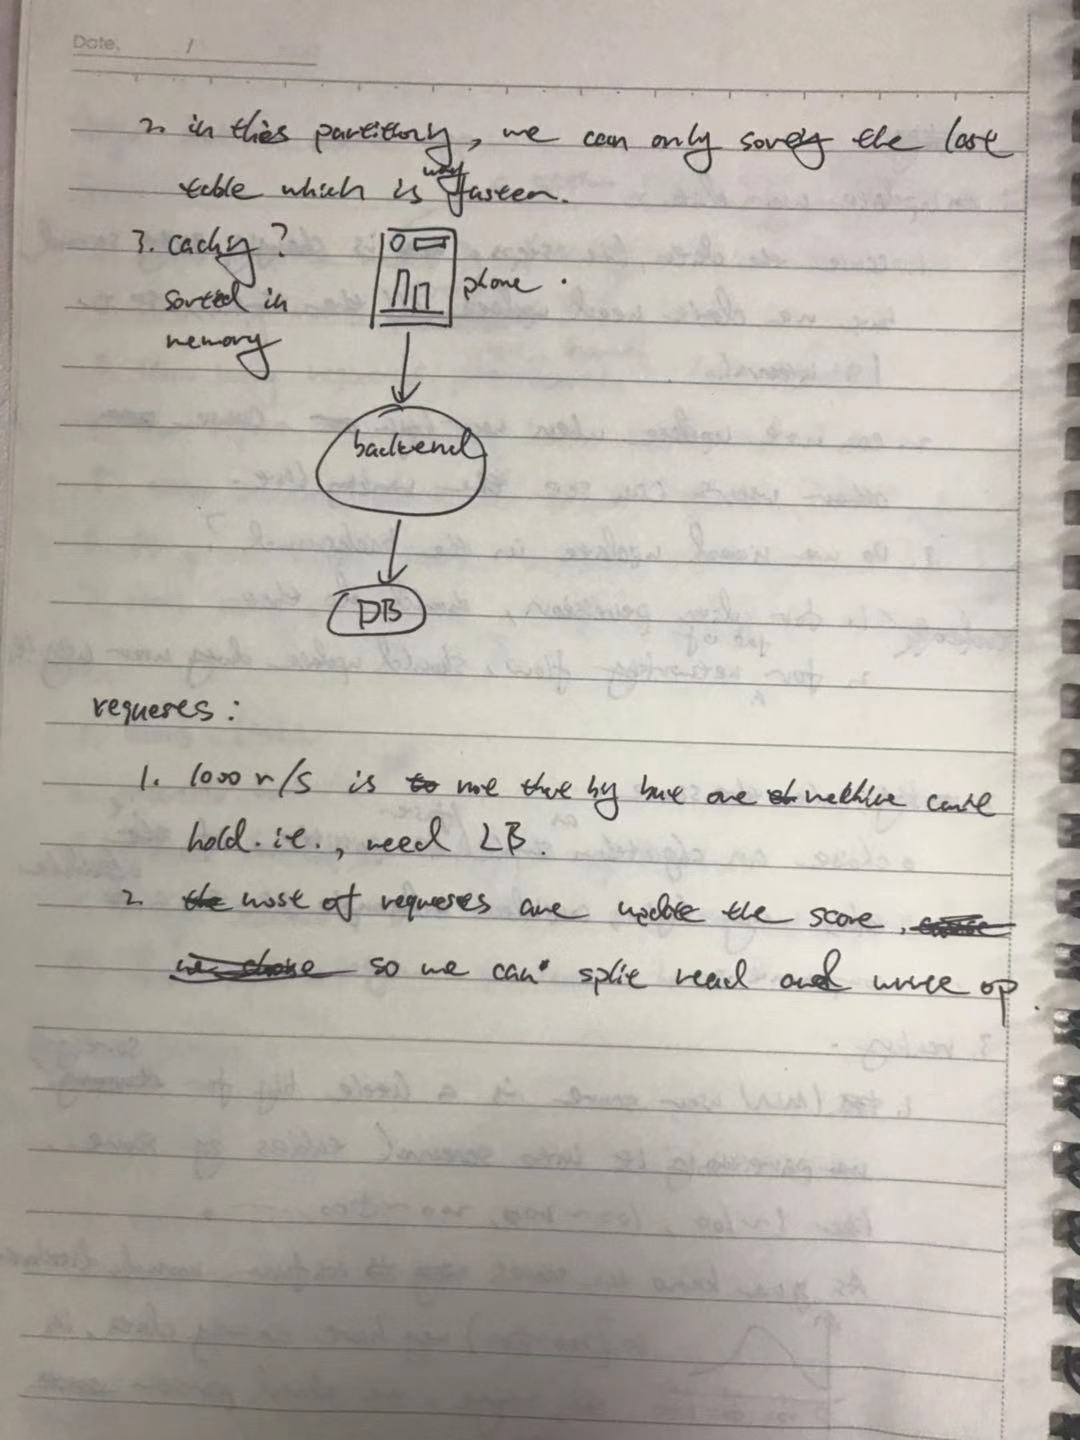 Date. /
2. in this partitiony, we can only sorey the last
table which is way faster.
3. cachy?
phone.
sorted in
memory
backend
DB
requeses:
1. 1000 r/s is not that big but one machine can't
hold. i.e., need LB.
2. the most of requeses are update the score,
so we can split read and write op.